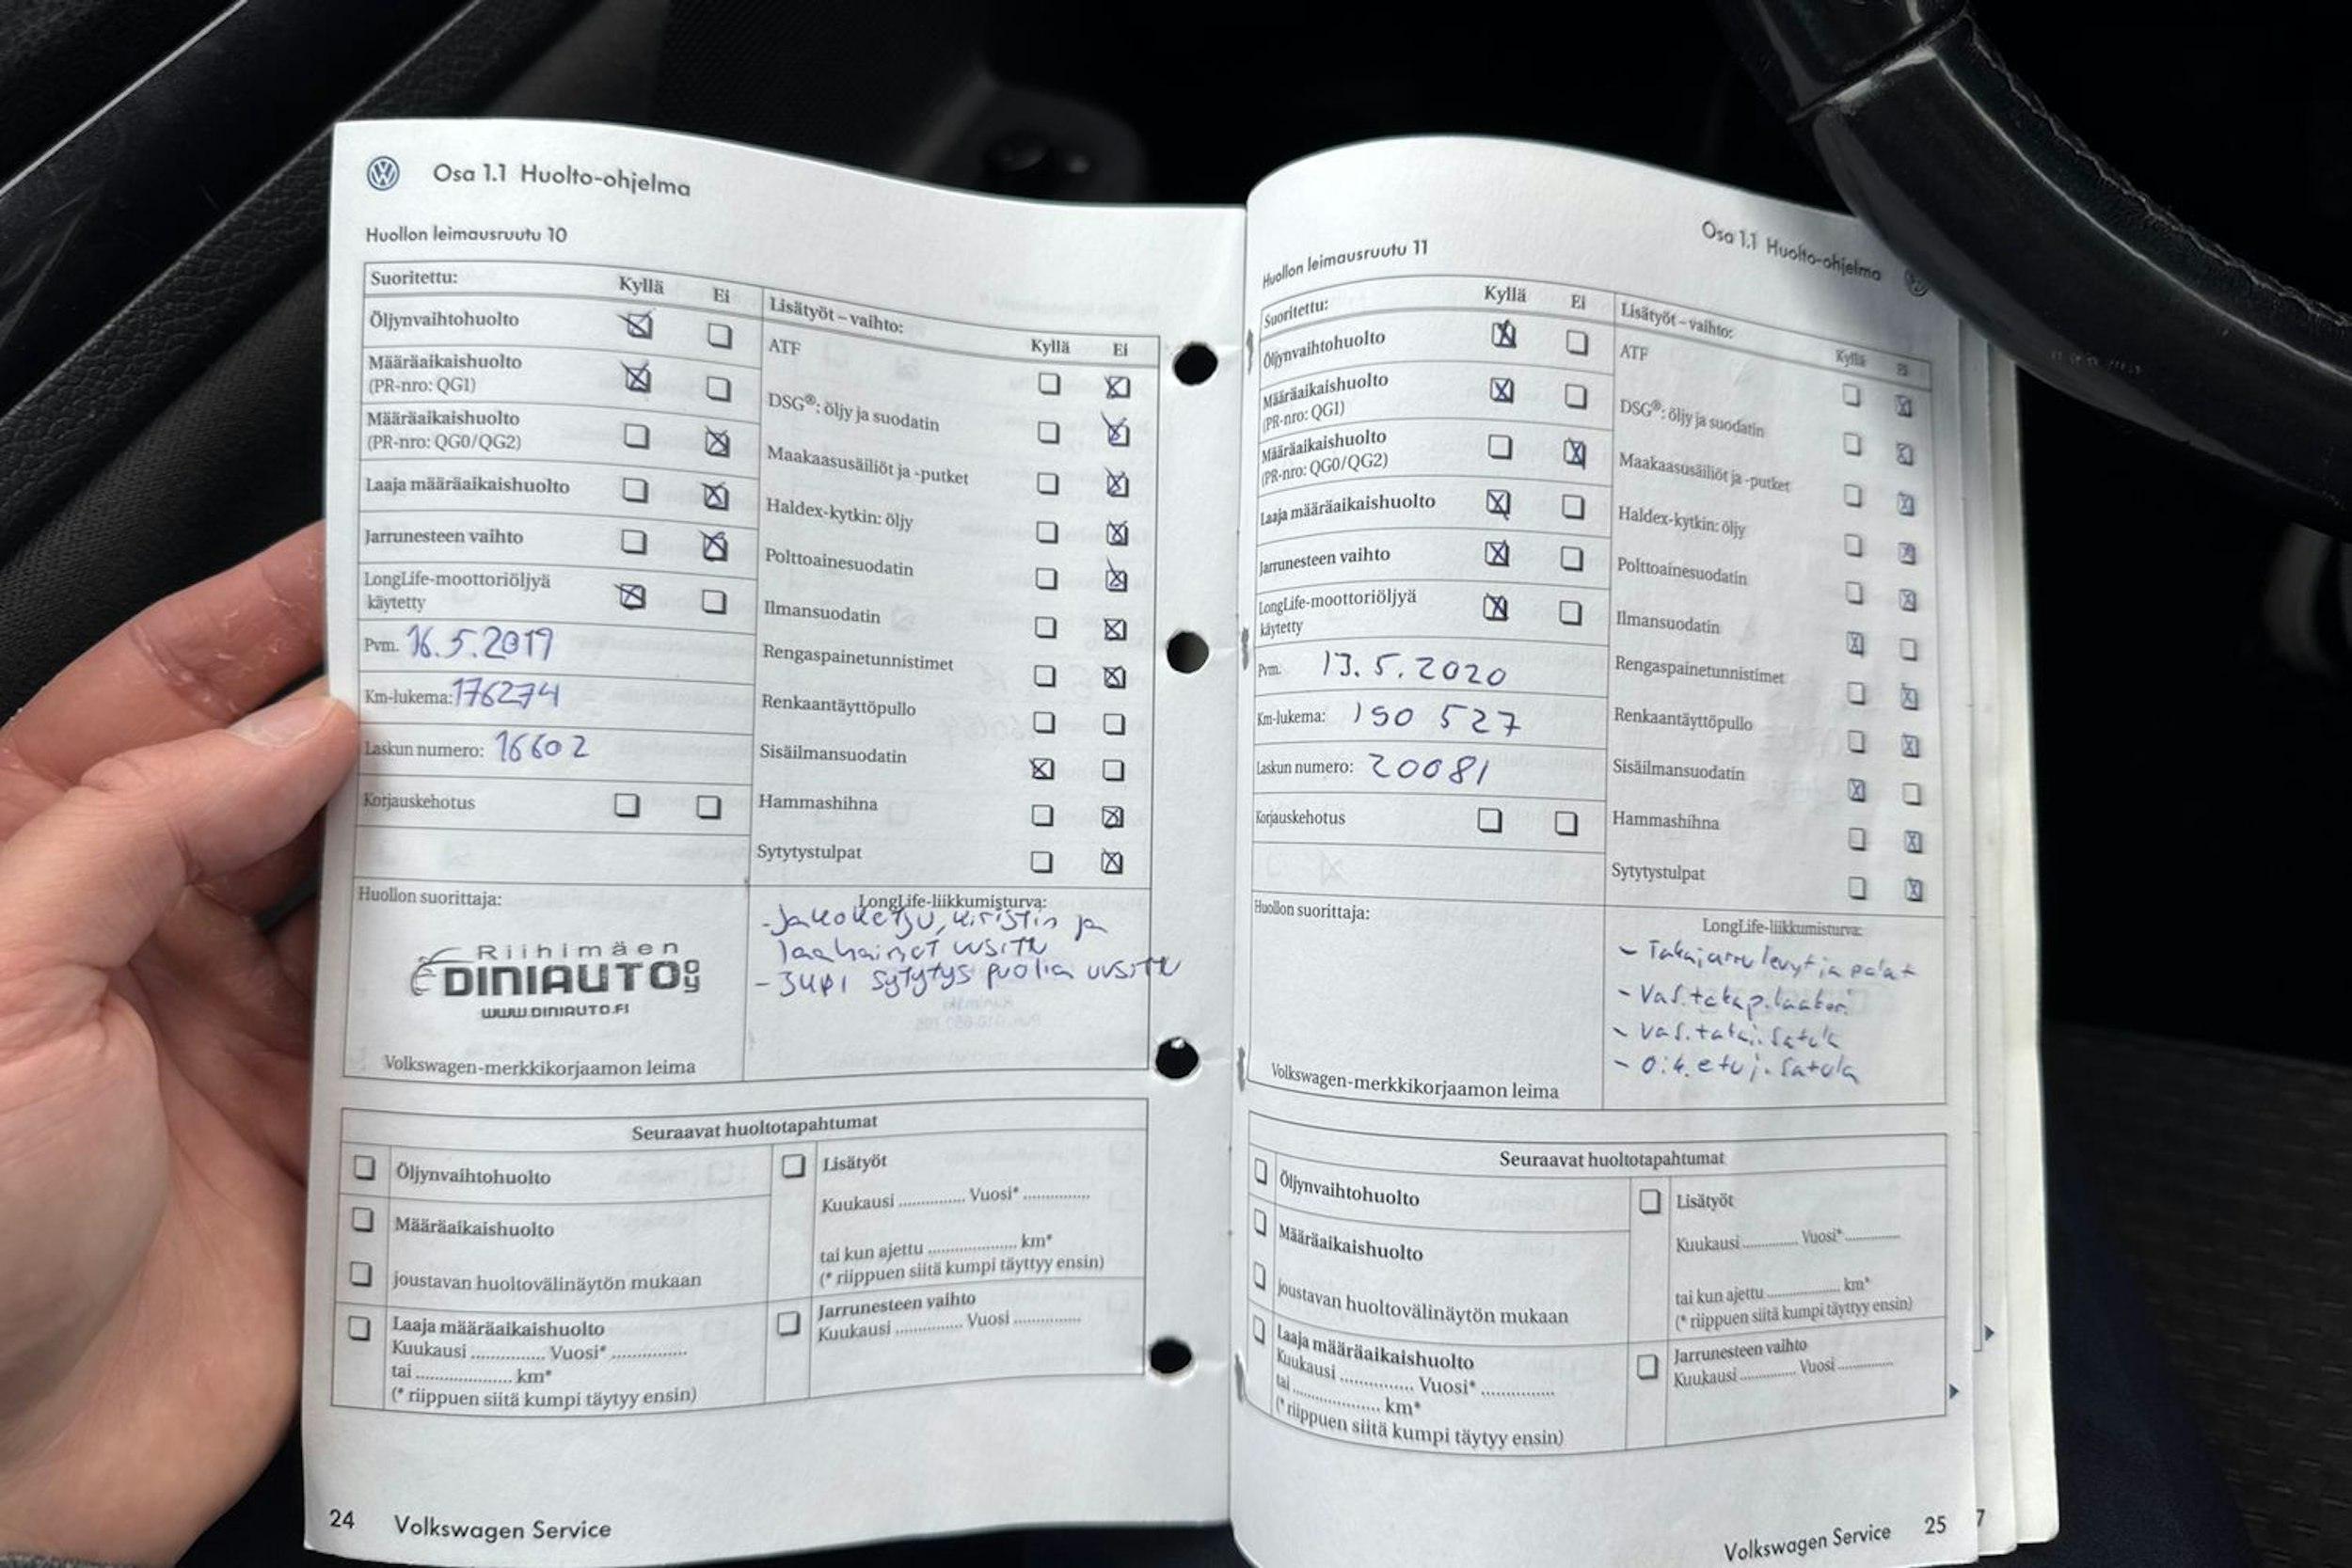 Osa 1.1 Huolto-ohjelma
Huollon leimausruutu 10
Suoritettu: Kyllä Ei
Öljynvaihtohuolto
Määräaikaishuolto
(PR-nro: QG1)
Määräaikaishuolto
(PR-nro: QG0/QG2)
Laaja määräaikaishuolto
Jarrunesteen vaihto
LongLife-moottoriöljyä
käytetty
Pvm. 16.5.2019
Km-lukema: 176274
Laskun numero: 16602
Korjauskehotus
Lisätyöt – vaihto:
Kyllä Ei
ATF
DSG®: öljy ja suodatin
Maakaasusäiliöt ja -putket
Haldex-kytkin: öljy
Polttoainesuodatin
Ilmansuodatin
Rengaspainetunnistimet
Renkaantäyttöpullo
Sisäilmansuodatin
Hammashihna
Sytytystulpat
Huollon suorittaja:
Riihimäen
DINIAUTO OY
WWW.DINIAUTO.FI
Volkswagen-merkkikorjaamon leima
LongLife-liikkumisturva:
- Jakoketju, kiristin ja
laahaimet uusittu
- 3kpl sytytys puolia uusittu
Seuraavat huoltotapahtumat
Öljynvaihtohuolto
Määräaikaishuolto
joustavan huoltovälinäytön mukaan
Laaja määräaikaishuolto
Kuukausi .............. Vuosi* ..............
tai .................. km*
(* riippuen siitä kumpi täytyy ensin)
Lisätyöt
Kuukausi .............. Vuosi* ..............
tai kun ajettu .................. km*
(* riippuen siitä kumpi täyttyy ensin)
Jarrunesteen vaihto
Kuukausi .............. Vuosi ..............
24 Volkswagen Service
Osa 1.1 Huolto-ohjelma
Huollon leimausruutu 11
Suoritettu: Kyllä Ei
Öljynvaihtohuolto
Määräaikaishuolto
(PR-nro: QG1)
Määräaikaishuolto
(PR-nro: QG0/QG2)
Laaja määräaikaishuolto
Jarrunesteen vaihto
LongLife-moottoriöljyä
käytetty
Pvm. 13.5.2020
Km-lukema: 190 527
Laskun numero: 20081
Korjauskehotus
Lisätyöt – vaihto:
Kyllä Ei
ATF
DSG®: öljy ja suodatin
Maakaasusäiliöt ja -putket
Haldex-kytkin: öljy
Polttoainesuodatin
Ilmansuodatin
Rengaspainetunnistimet
Renkaantäyttöpullo
Sisäilmansuodatin
Hammashihna
Sytytystulpat
Huollon suorittaja:
Volkswagen-merkkikorjaamon leima
LongLife-liikkumisturva:
- Takajarrulevyt ja palat
- Vas. takap. laakeri
- Vas. takaj. satula
- Oik. etuj. satula
Seuraavat huoltotapahtumat
Öljynvaihtohuolto
Määräaikaishuolto
joustavan huoltovälinäytön mukaan
Laaja määräaikaishuolto
Kuukausi .............. Vuosi* ..............
tai .................. km*
(* riippuen siitä kumpi täytyy ensin)
Lisätyöt
Kuukausi .............. Vuosi* ..............
tai kun ajettu .................. km*
(* riippuen siitä kumpi täyttyy ensin)
Jarrunesteen vaihto
Kuukausi .............. Vuosi ..............
Volkswagen Service 25
7